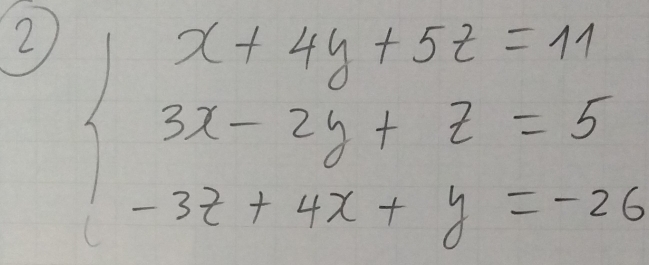 ② x + 4y + 5z = 11
3x - 2y + z = 5
-3z + 4x + y = -26